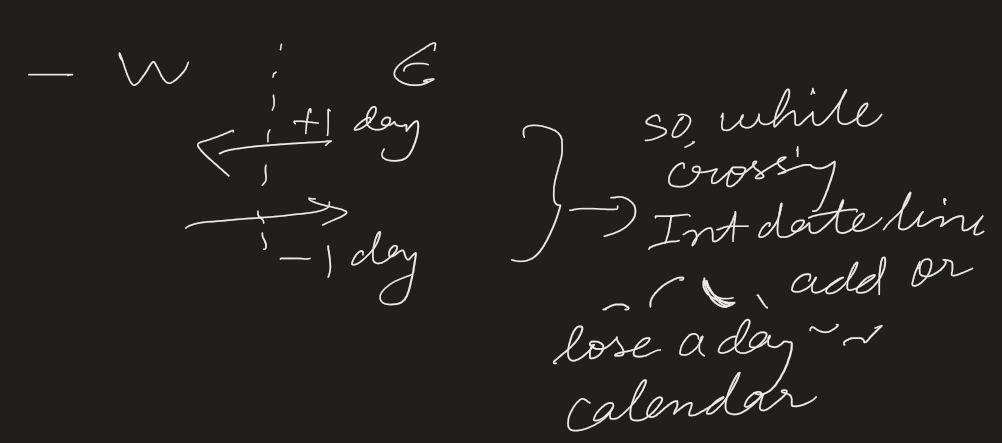 — W E
+1 day
-1 day
so, while
crossing
Int date line
add or
lose a day
calendar